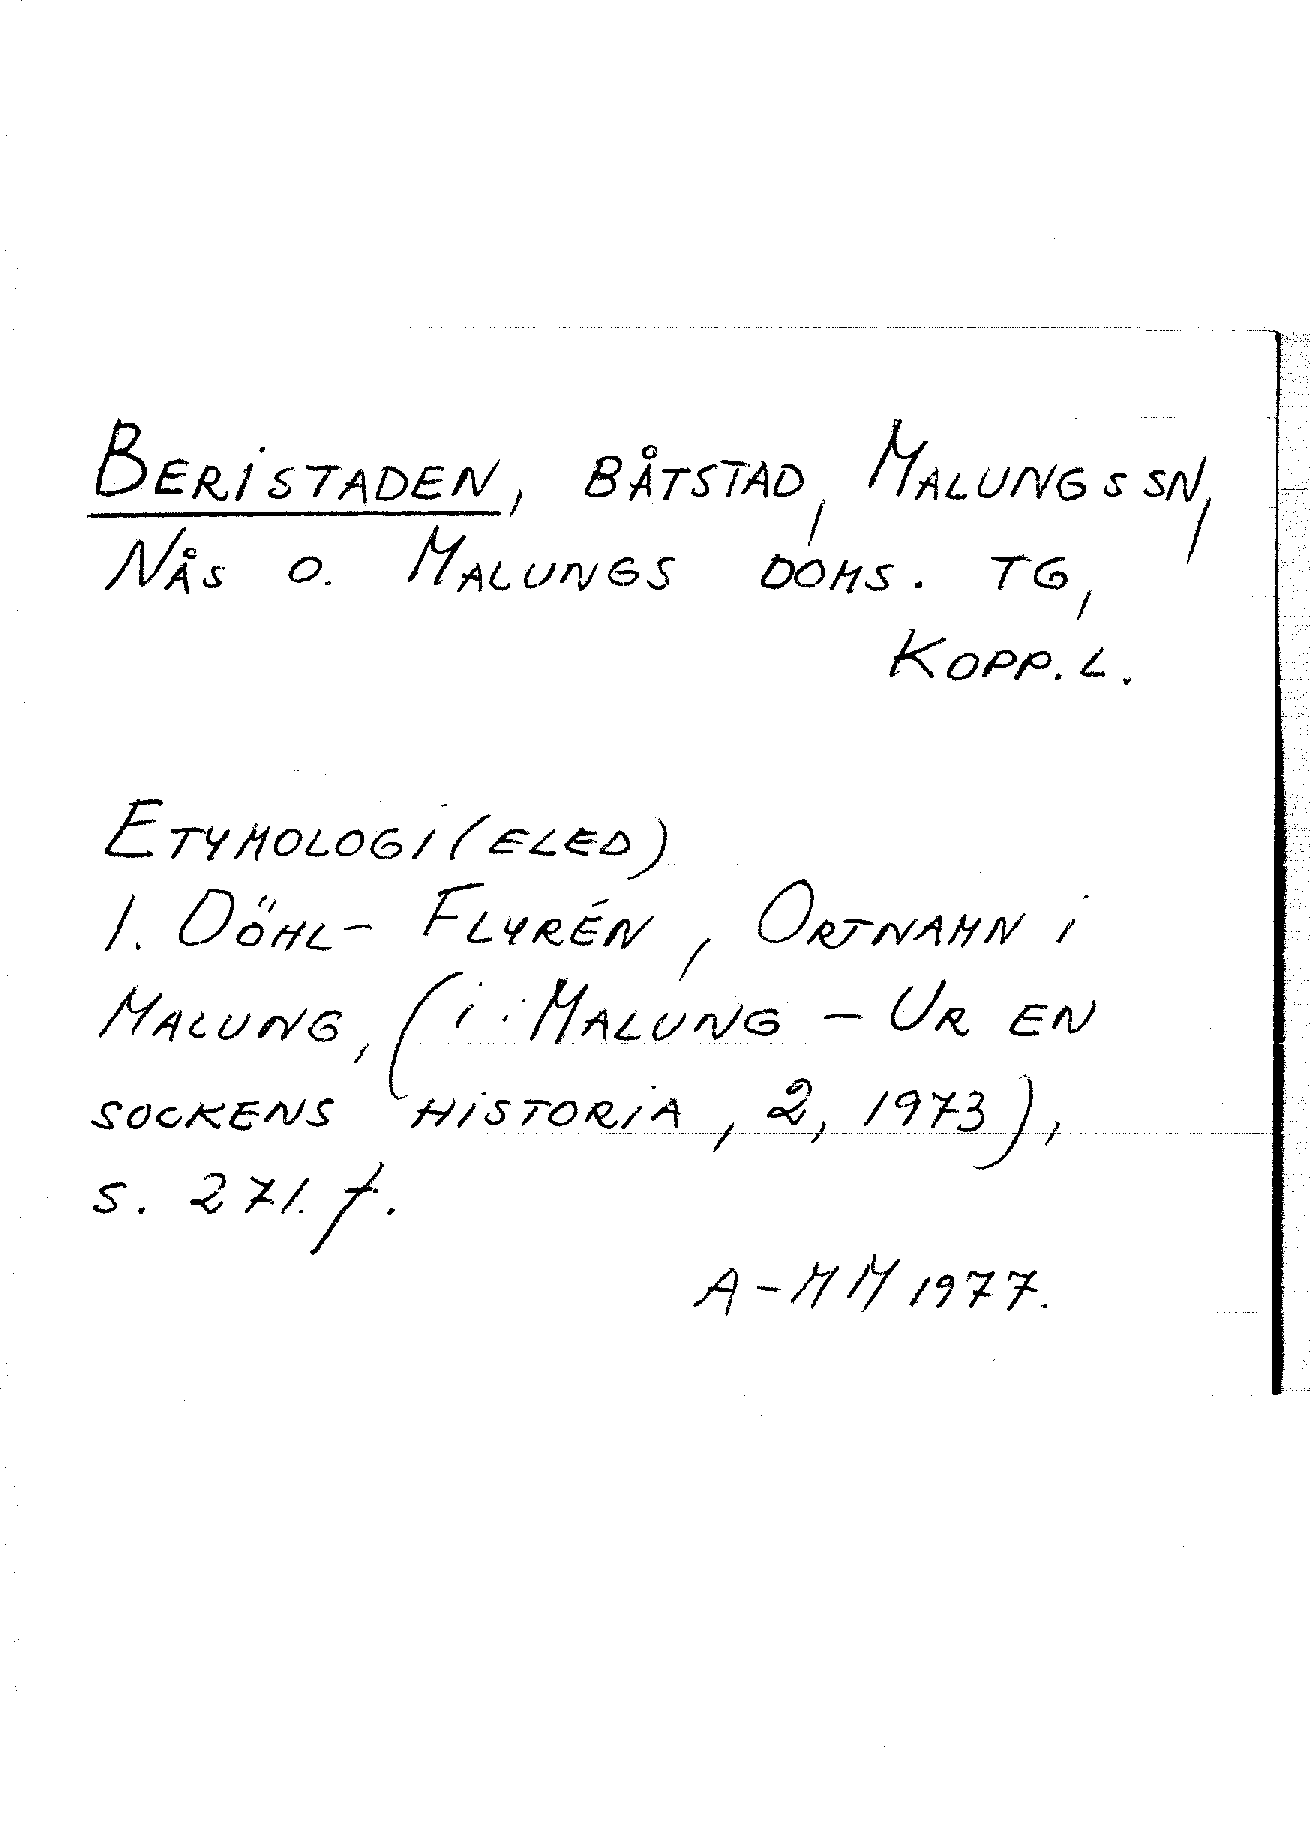 BERISTADEN, BÅTSTAD, MALUNGS SN,
NÅS O. MALUNGS DOMS. TG,
KOPP. L.
ETYMOLOGI (ELED)
I. DÖHL-FLYRÉN, ORTNAMN I
MALUNG, (I: MALUNG - UR EN
SOCKENS HISTORIA, 2, 1973),
S. 271. f.
A-MM 1977.